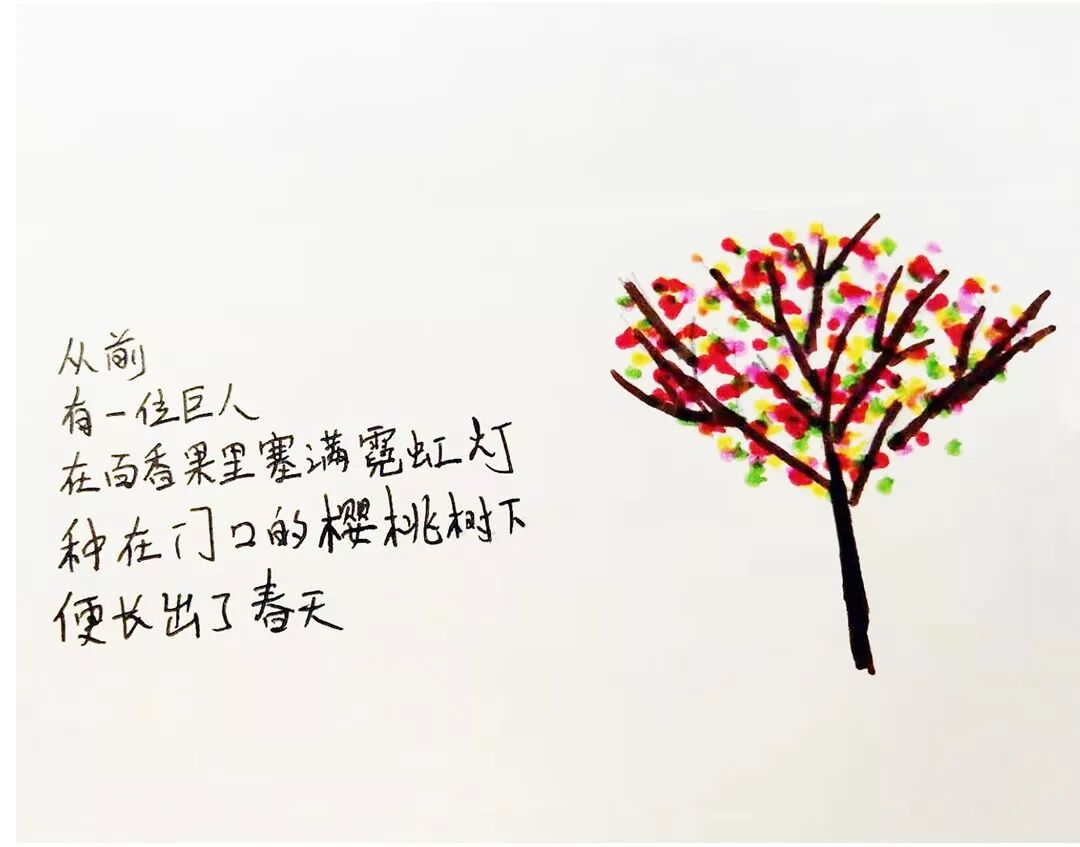 从前
有一位巨人
在百香果里塞满霓虹灯
种在门口的樱桃树下
便长出了春天